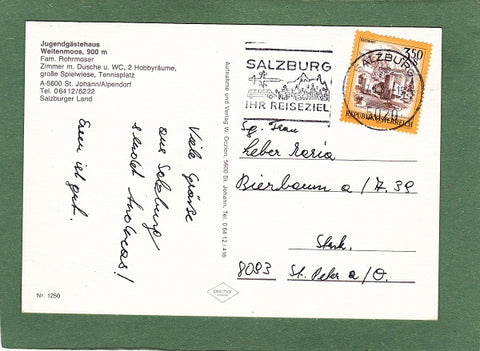 Jugendgästehaus
Weitenmoos, 900 m
Fam. Rohrmoser
Zimmer m. Dusche u. WC, 2 Hobbyräume,
große Spielwiese, Tennisplatz
A-5600 St. Johann/Alpendorf
Tel. 06412/6222
Salzburger Land
Viele Grüße
aus Salzburg
sendet Andreas!
Essen ist gut.
Nr. 1250
Aufnahme und Verlag W. 5600 St. Johann, Tel. 0 64 12 / 416
SALZBURG
IHR REISEZIEL
SALZBURG
5020
350
REPUBLIK ÖSTERREICH
Frau
Leber Maria
Bierbaum a/7. 39
Stmk.
8093 St. Peter a/O.